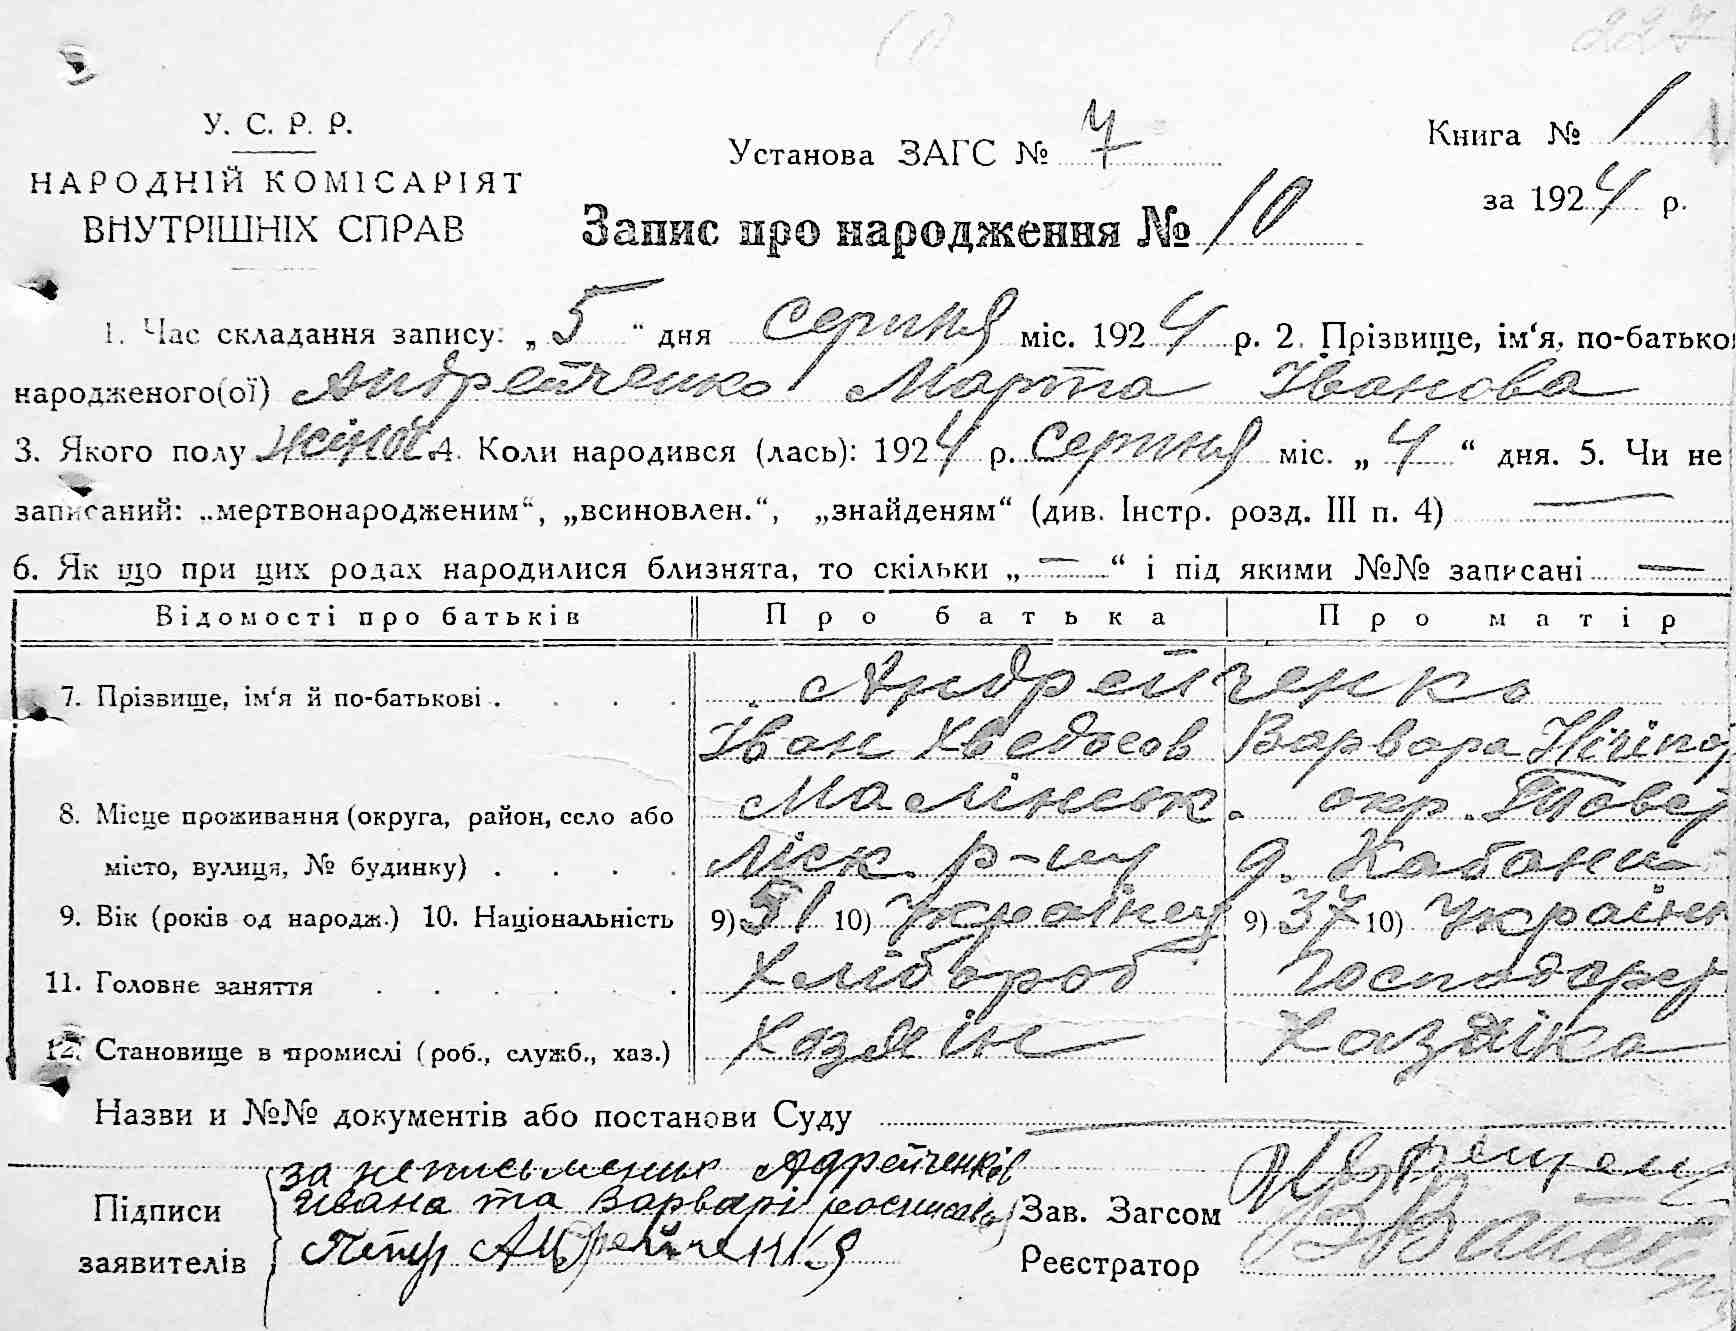 227
У. С. Р. Р.
НАРОДНІЙ КОМІСАРІЯТ
ВНУТРІШНІХ СПРАВ
Установа ЗАГС № 7
Книга № 1
за 1924 р.
Запис про народження № 10
1. Час складання запису: „5“ дня Серпня міс. 1924 р. 2. Прізвище, ім‘я, по-батько
народженого(ої) Андрейченко Марта Іванова
3. Якого полу жіноч 4. Коли народився (лась): 1924 р. Серпня міс. „4“ дня. 5. Чи не
записаний: „мертвонародженим“, „всиновлен.“, „знайденям“ (див. Інстр. розд. III п. 4) —
6. Як що при цих родах народилися близнята, то скільки „—“ і під якими №№ записані —
Відомості про батьків Про батька Про матір
7. Прізвище, ім‘я й по-батькові . . . . Андрейченко
Іван Хведосов Варвара
8. Місце проживання (округа, район, село або Малінськ. окр.
місто, вулиця, № будинку) . . . . р-ну Кабани
9. Вік (років од народж.) 10. Національність 9) 51 10) Українец 9) 37 10) Українк
11. Головне заняття . . . . . . Хлібороб Господарст
12. Становище в промислі (роб., служб., хаз.) Хазяїн Хазяїка
Назви и №№ документів або постанови Суду —
Підписи
заявителів
за неписьмених Адрейченків
Ивана та Варварі росписався
Петр Андрейченко
Зав. Загсом
Реєстратор